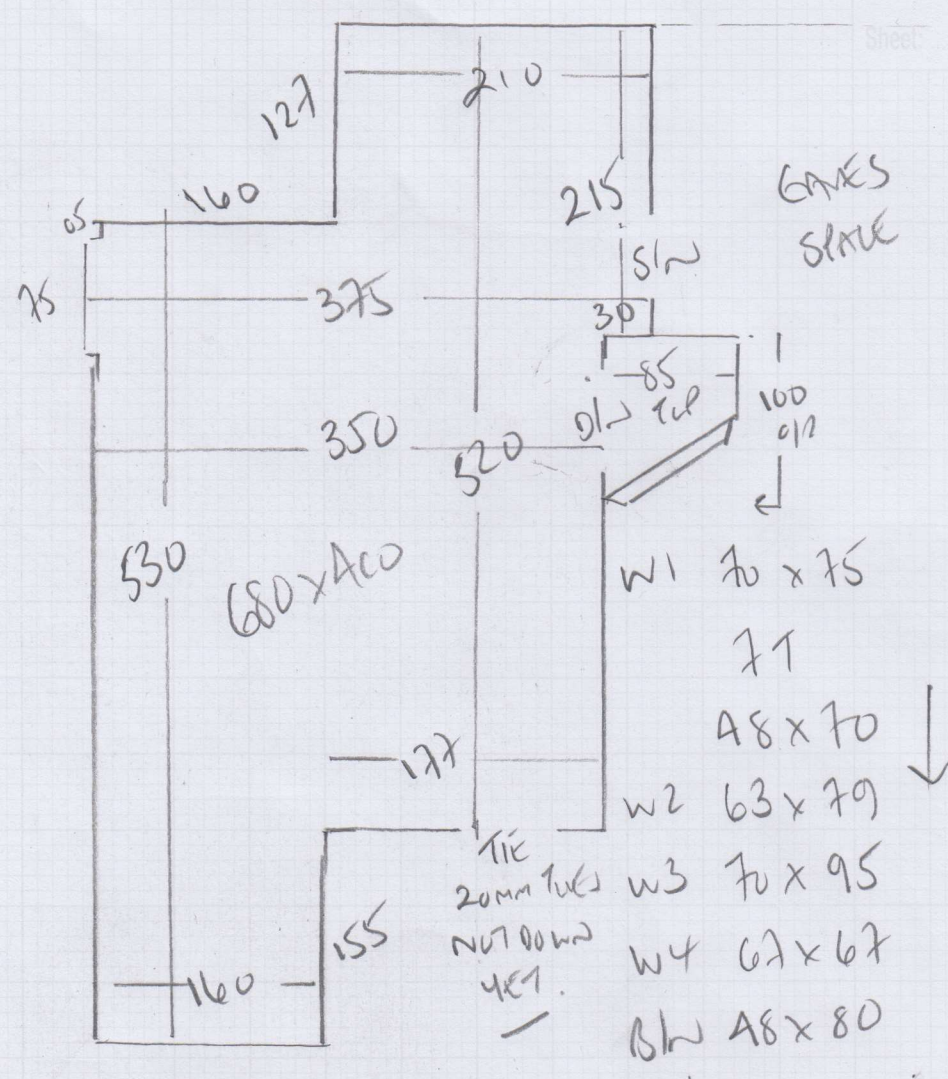 Sheet
210
127
160
215
EAVES
SPACE
05
S/N
75
375
30
85
100
350
520
530
680 x 400
W1 70 x 75
7T
48 x 70
177
W2 63 x 79
TIE
20MM
NOT DOWN
YET.
W3 70 x 95
155
W4 67 x 67
160
B/N 48 x 80